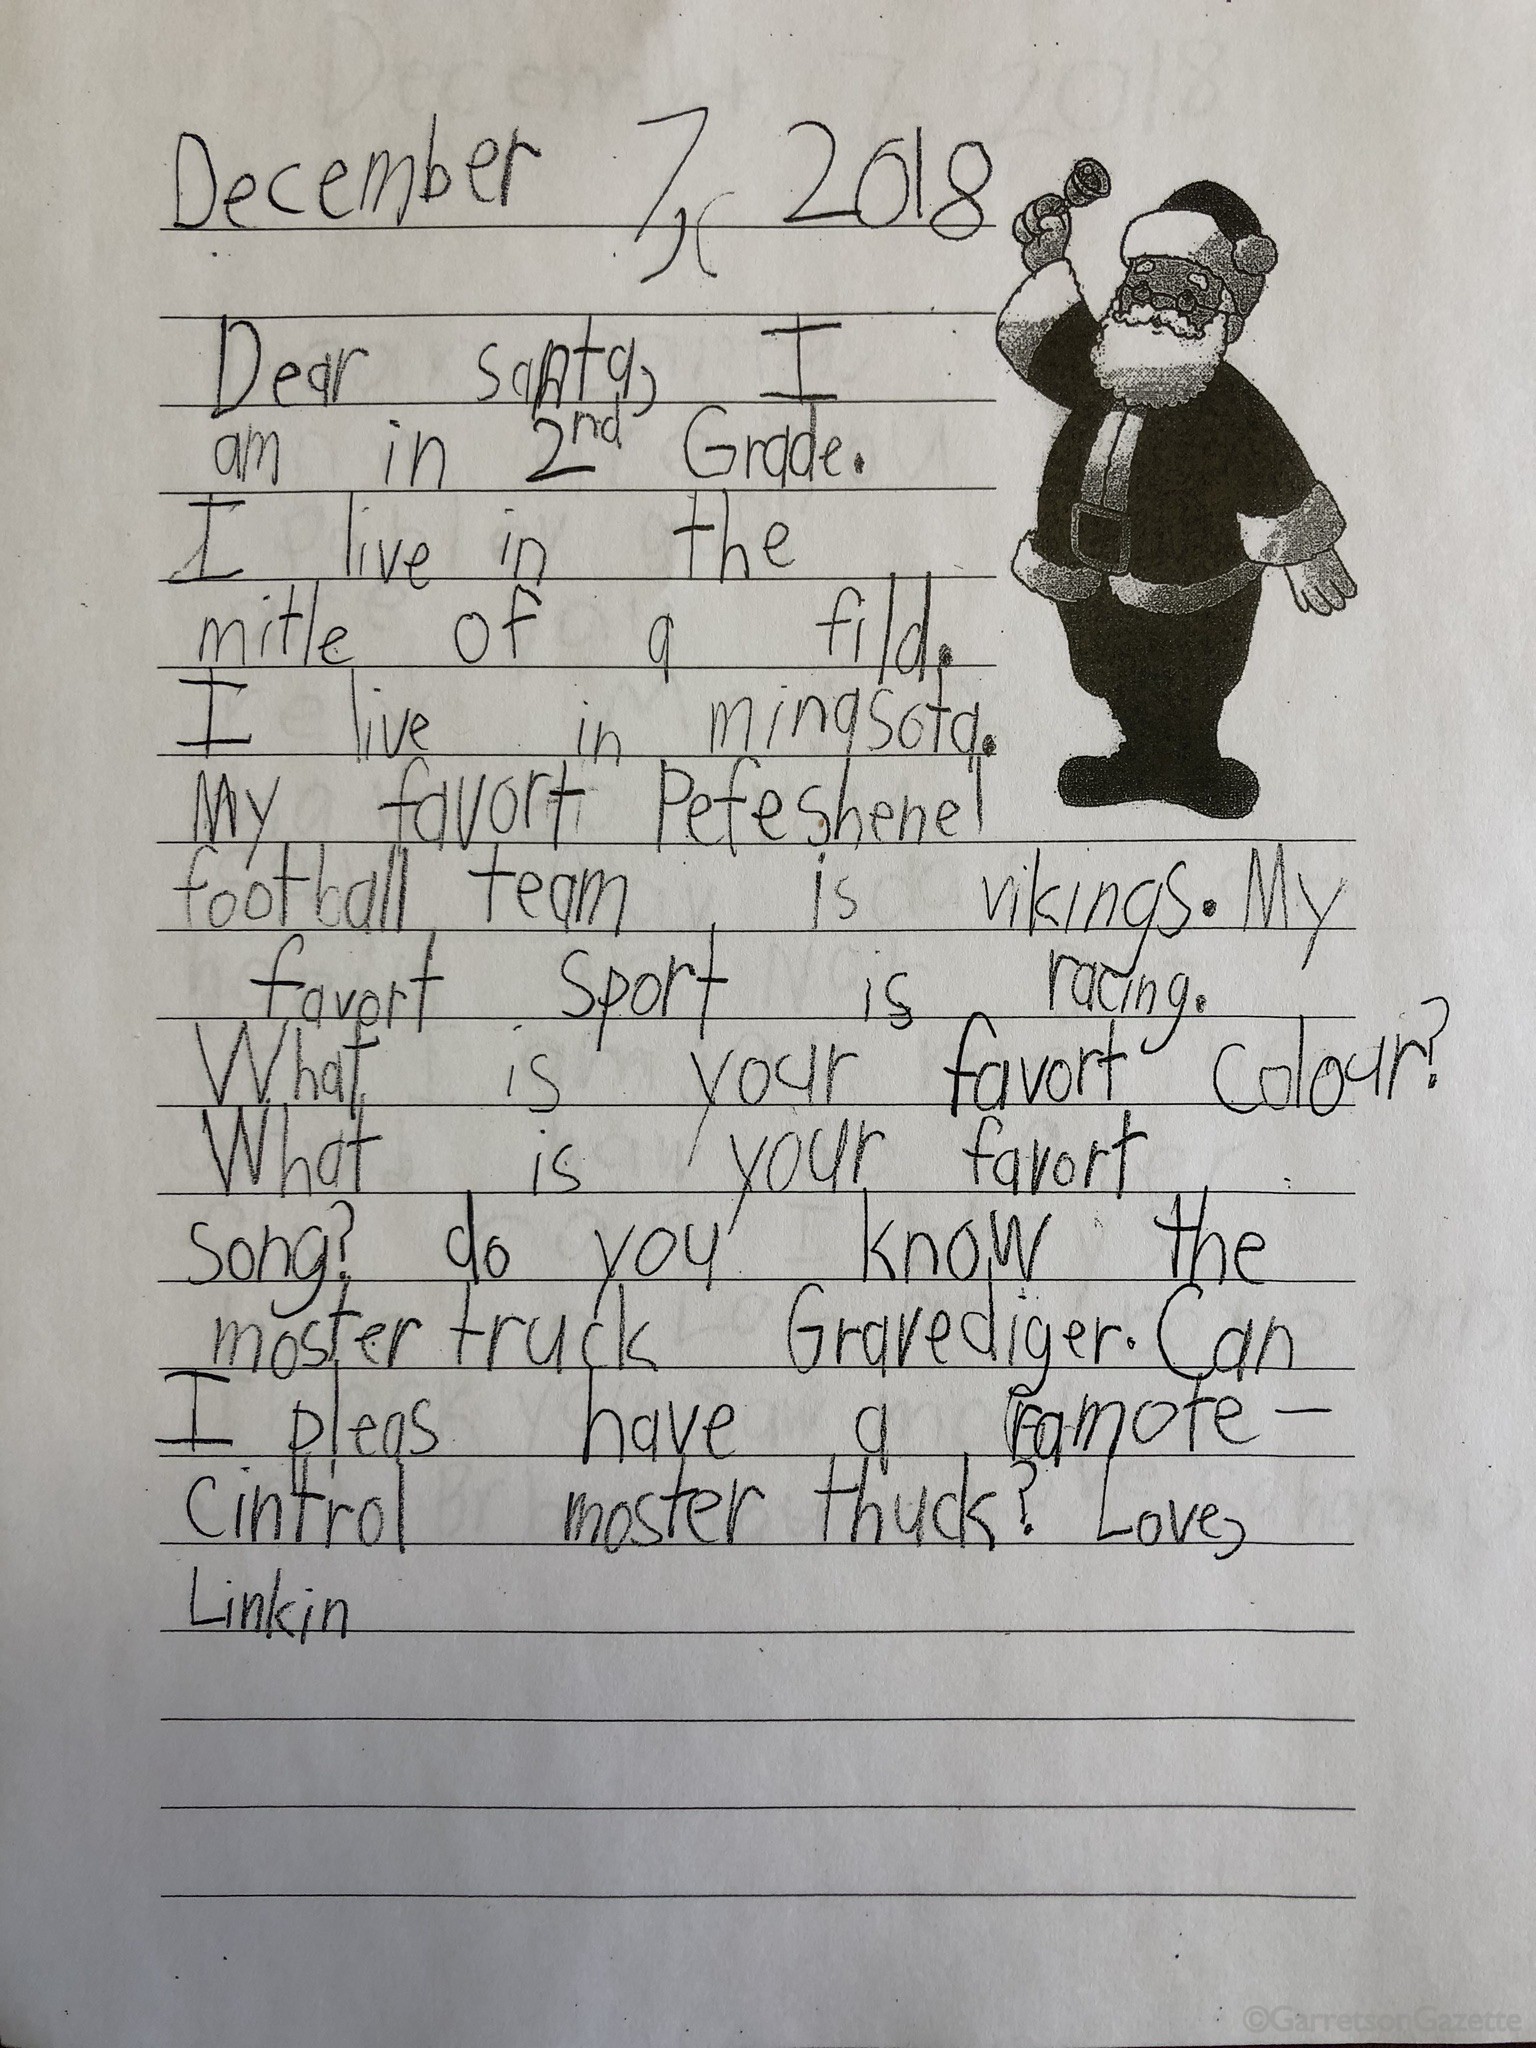 December 7, 2018
Dear santa, I
am in 2nd Grade.
I live in the
mitle of a fild.
I live in mingsota.
My favort Pefeshenel
football team is vikings. My
favort sport is racing.
What is your favort colour?
What is your favort
song? do you know the
moster truck Gravediger. Can
I pleas have a ramote-
cintrol moster thuck? Love,
Linkin
©GarretsonGazette